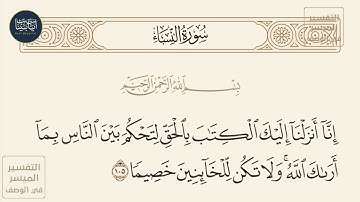 سُورَةُ النِّسَاءِ
التفسير
الميسر
في الوصف
بِسْمِ اللَّهِ الرَّحْمَٰنِ الرَّحِيمِ
إِنَّآ أَنزَلْنَآ إِلَيْكَ ٱلْكِتَٰبَ بِٱلْحَقِّ لِتَحْكُمَ بَيْنَ ٱلنَّاسِ بِمَآ
أَرَىٰكَ ٱللَّهُ ۚ وَلَا تَكُن لِّلْخَآئِنِينَ خَصِيمًا ١٠٥
التفسير
الميسر
في الوصف